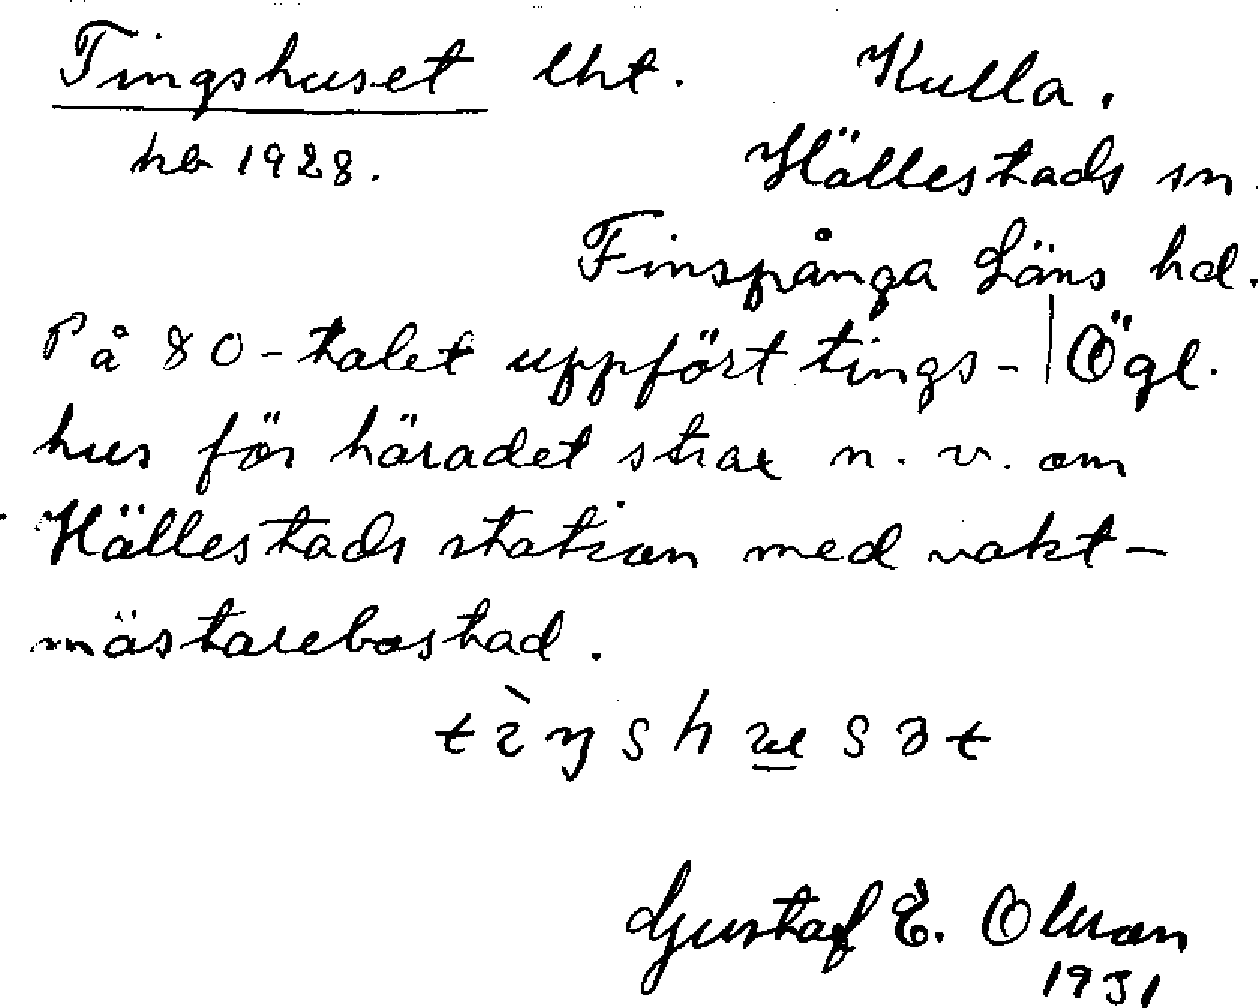 Tingshuset lht. Kulla.
hb 1928. Hällestads sn.
Finspånga Läns hd.
På 80-talet uppfört tings- | Ögl.
hus för häradet strax n. v. om
Hällestads station med vakt-
mästarebostad.
Gustaf E. Olsson
1931